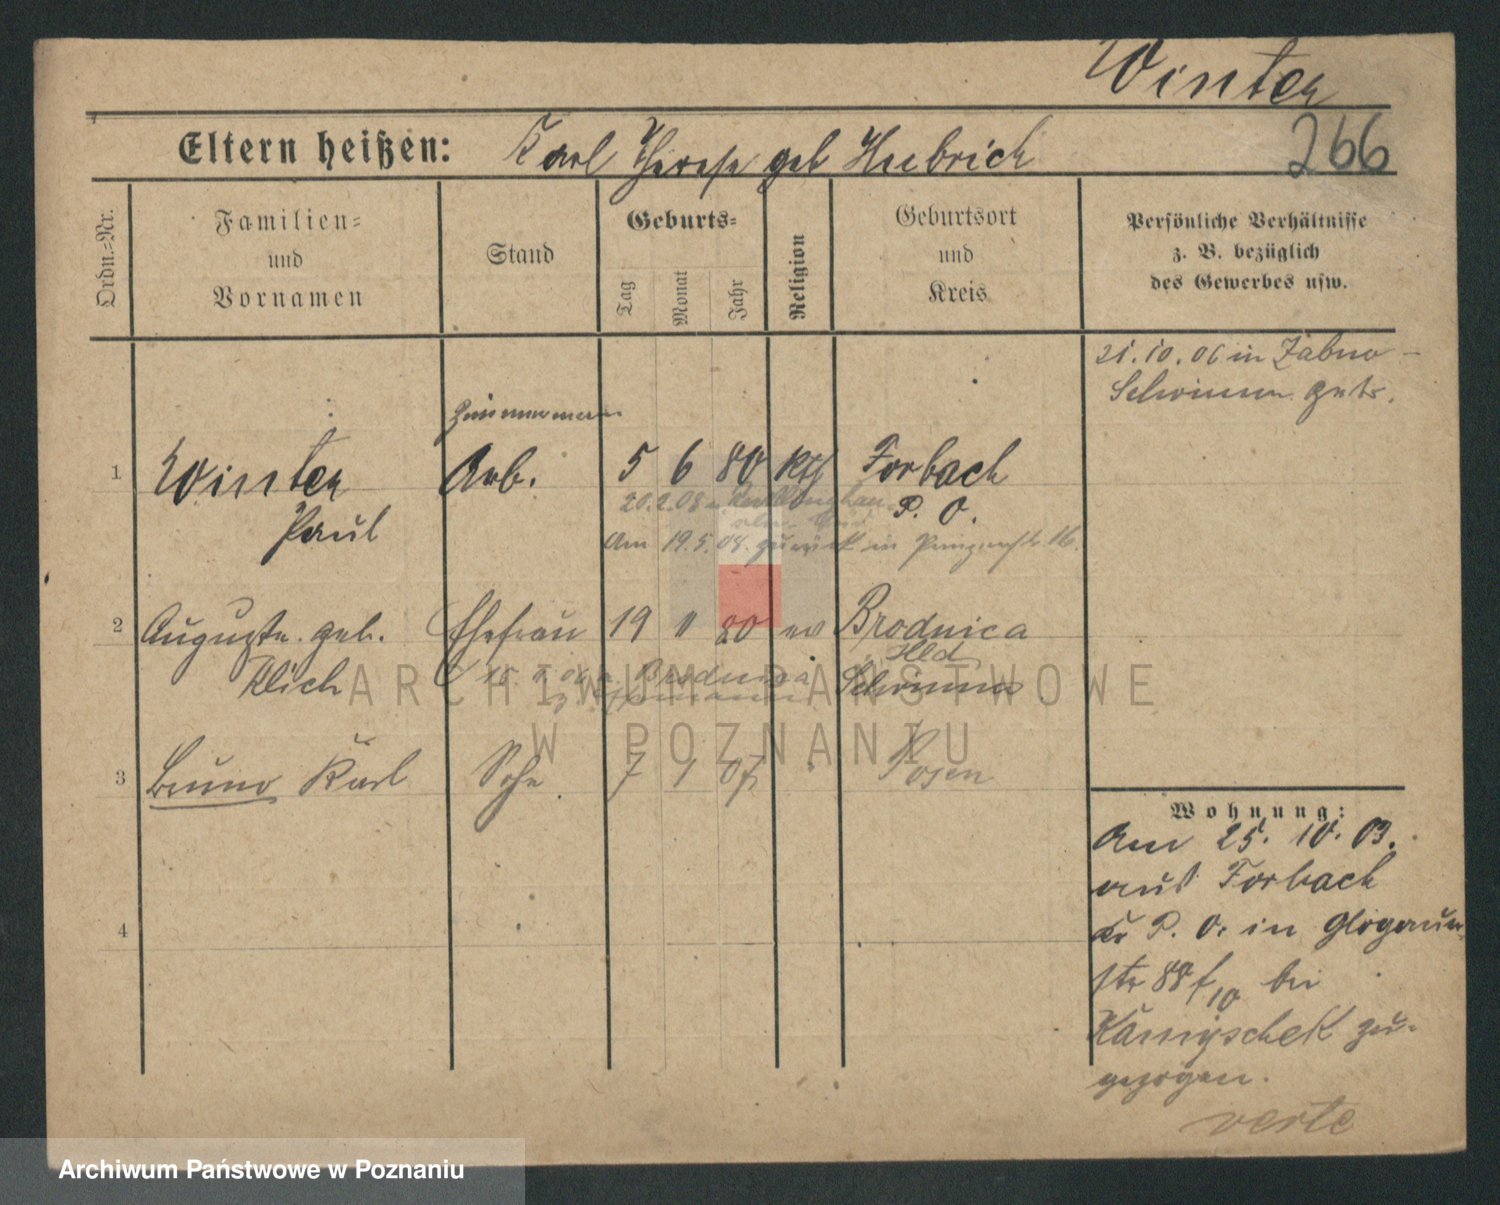 Winter
266
Eltern heißen: Karl Therese geb Hubrich
Ordn.=Nr.
Familien=
und
Vornamen
Stand
Geburts=
Tag
Monat
Jahr
Religion
Geburtsort
und
Kreis
Persönliche Verhältnisse
z. B. bezüglich
des Gewerbes usw.
21.10.06 in Zabno
Schrimm
Zimmermann
1 Winter Arb. 5 6 80 kth Forbach
Paul P. O.
20.2.08
Am 19.5.08. zurück in 16.
2 Auguste geb. Ehefrau 19 11 80 ev Brodnica
Klich Brodnica Schrimm
3 Bruno Karl Sohn 7 1 07 " Posen
4
Wohnung:
Am 25. 10. 03.
aus Forbach
Kr P. O. in Glogauer
str 88 f 10 bei
zu-
gezogen.
verte
ARCHIWUM PAŃSTWOWE
W POZNANIU
Archiwum Państwowe w Poznaniu